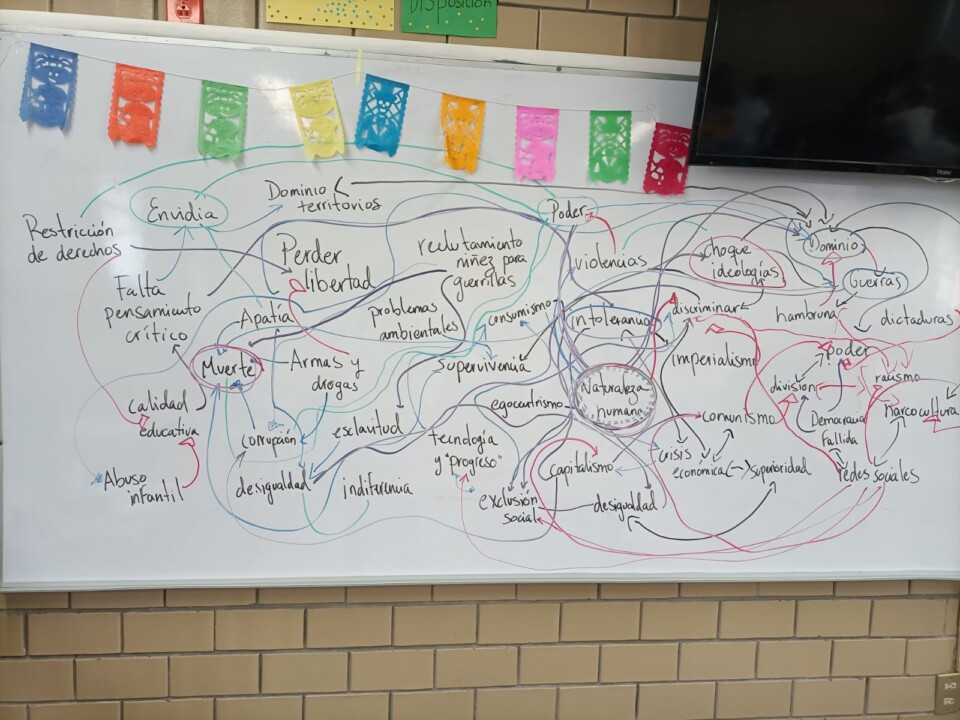 Disposición
Haier
Restricción
de derechos
Envidia
Dominio
territorios
Perder
libertad
reclutamiento
niñez para
guerrillas
Poder
violencias
choque
ideologías
Dominio
Guerras
Falta
pensamiento
crítico
Apatía
problemas
ambientales
consumismo
intolerancia
discriminar
hambruna
dictaduras
Muerte
Armas y
drogas
supervivencia
Naturaleza
humana
imperialismo
poder
división
racismo
calidad
educativa
corrupción
esclavitud
egocentrismo
tecnología
y "progreso"
comunismo
Democracia
Fallida
Narcocultura
Abuso
infantil
desigualdad
indiferencia
exclusión
social
capitalismo
desigualdad
crisis
económica
superioridad
redes sociales